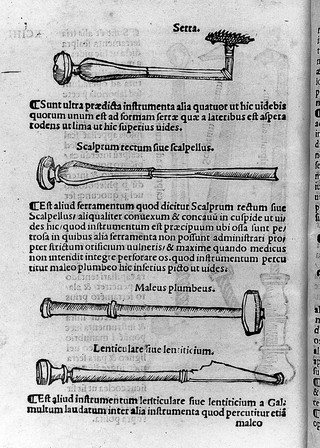 Serra.
¶Sunt ultra prædicta instrumenta alia quatuor ut hic uidebis
quorum unum est ad formam serræ quæ a lateribus est aspera
rodens ut lima ut hic superius uides.
Scalprum rectum siue scalpellus.
¶Est aliud ferramentum quod dicitur Scalprum rectum siue
Scalpellus/ aliqualiter conuexum & concauũ in cuspide ut ui
des hic/ quod instrumentum est præcipuum ubi ossa sunt pe/
trosa in quibus alia ferramēta non possunt administrari pro/
pter strictum orificium uulneris/ & maxime quando medicus
non intendit integre perforare os. quod instrumentum percu
titur maleo plumbeo hic inferius picto ut uides.
Maleus plumbeus.
Lenticulare siue lentiticium.
¶Est aliud instrumentum lenticulare siue lentiticium a Gal/
multum laudatum inter alia instrumenta quod percutitur etiã
maleo